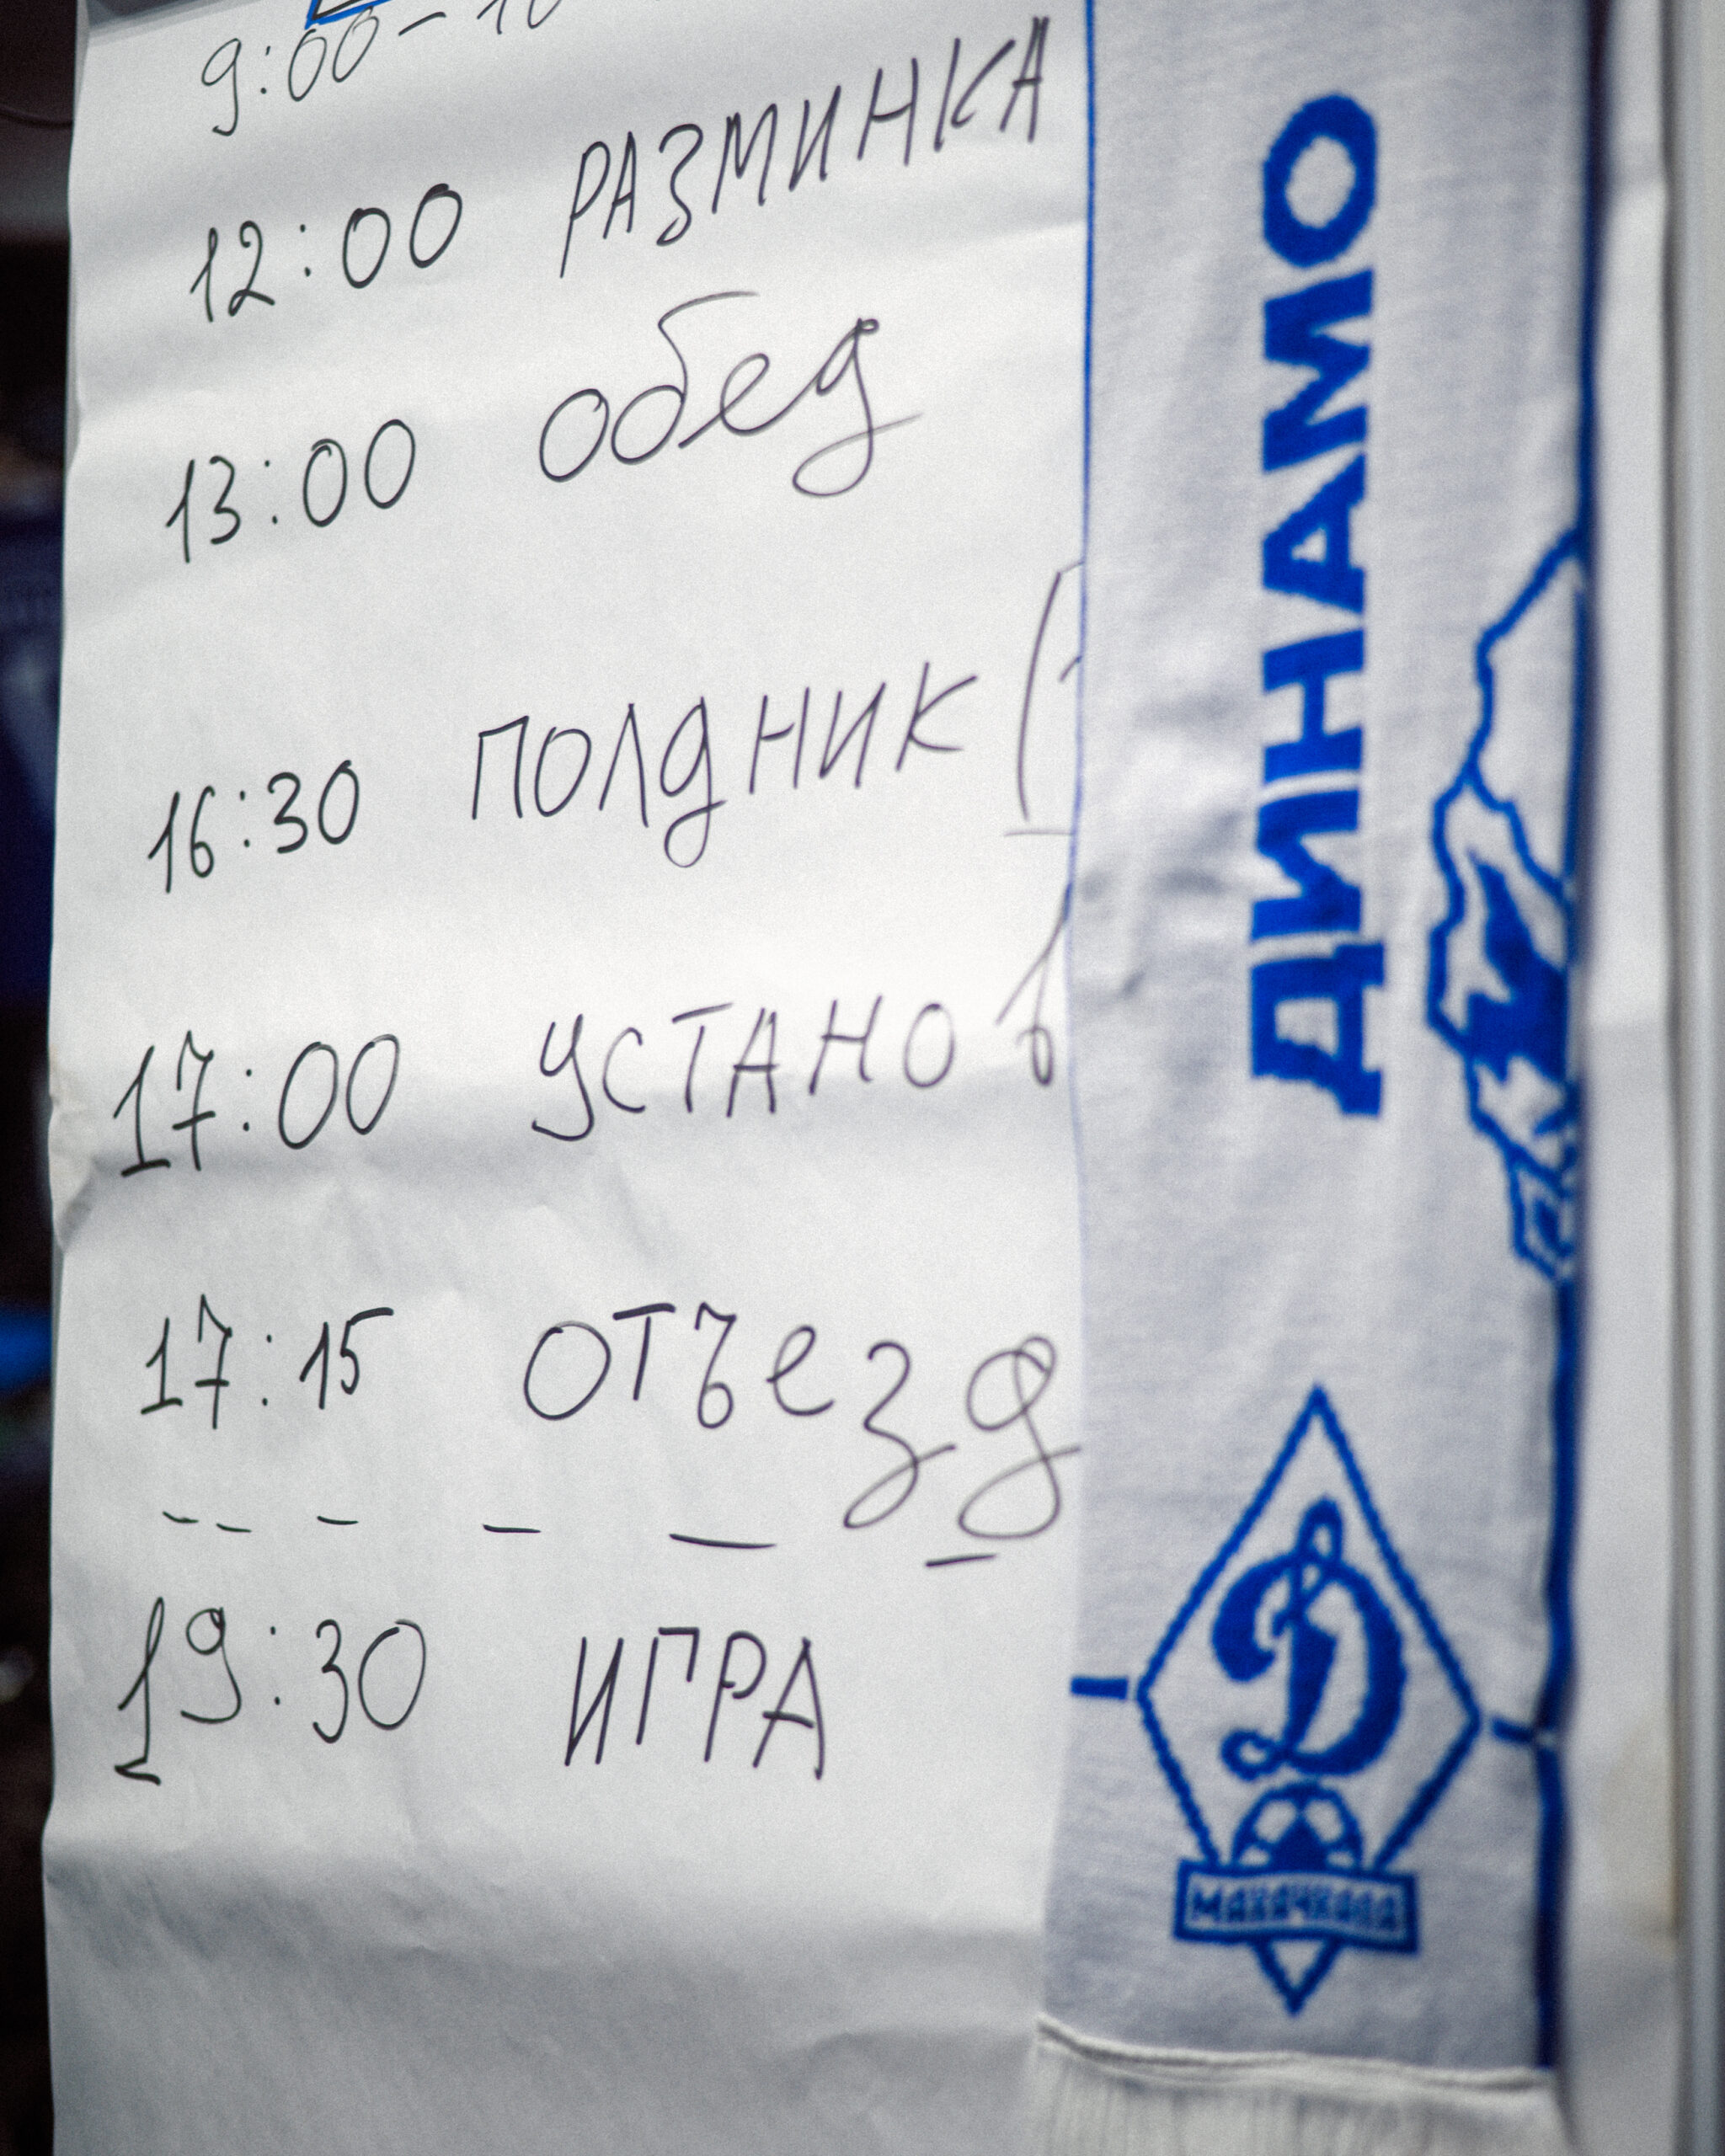 9:00-10
12:00 РАЗМИНКА
13:00 обед
16:30 ПОЛДНИК (
17:00 УСТАНОВ
17:15 ОТЪезд
19:30 ИГРА
ДИНАМО
Д
МАХАЧКАЛА